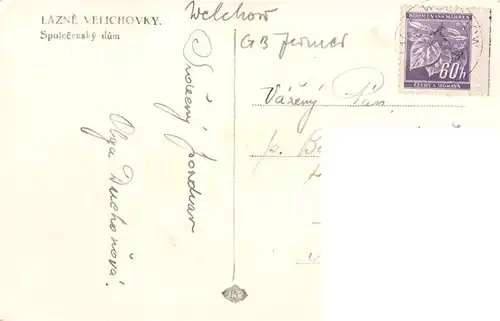 LÁZNĚ VELICHOVKY.
Společenský dům
Welchow
GB Jermer
Srdečný pozdrav
Olga Duchoňová.
BÖHMEN U. MÄHREN
60h
ČECHY A MORAVA
Vážený Pán
p. Be